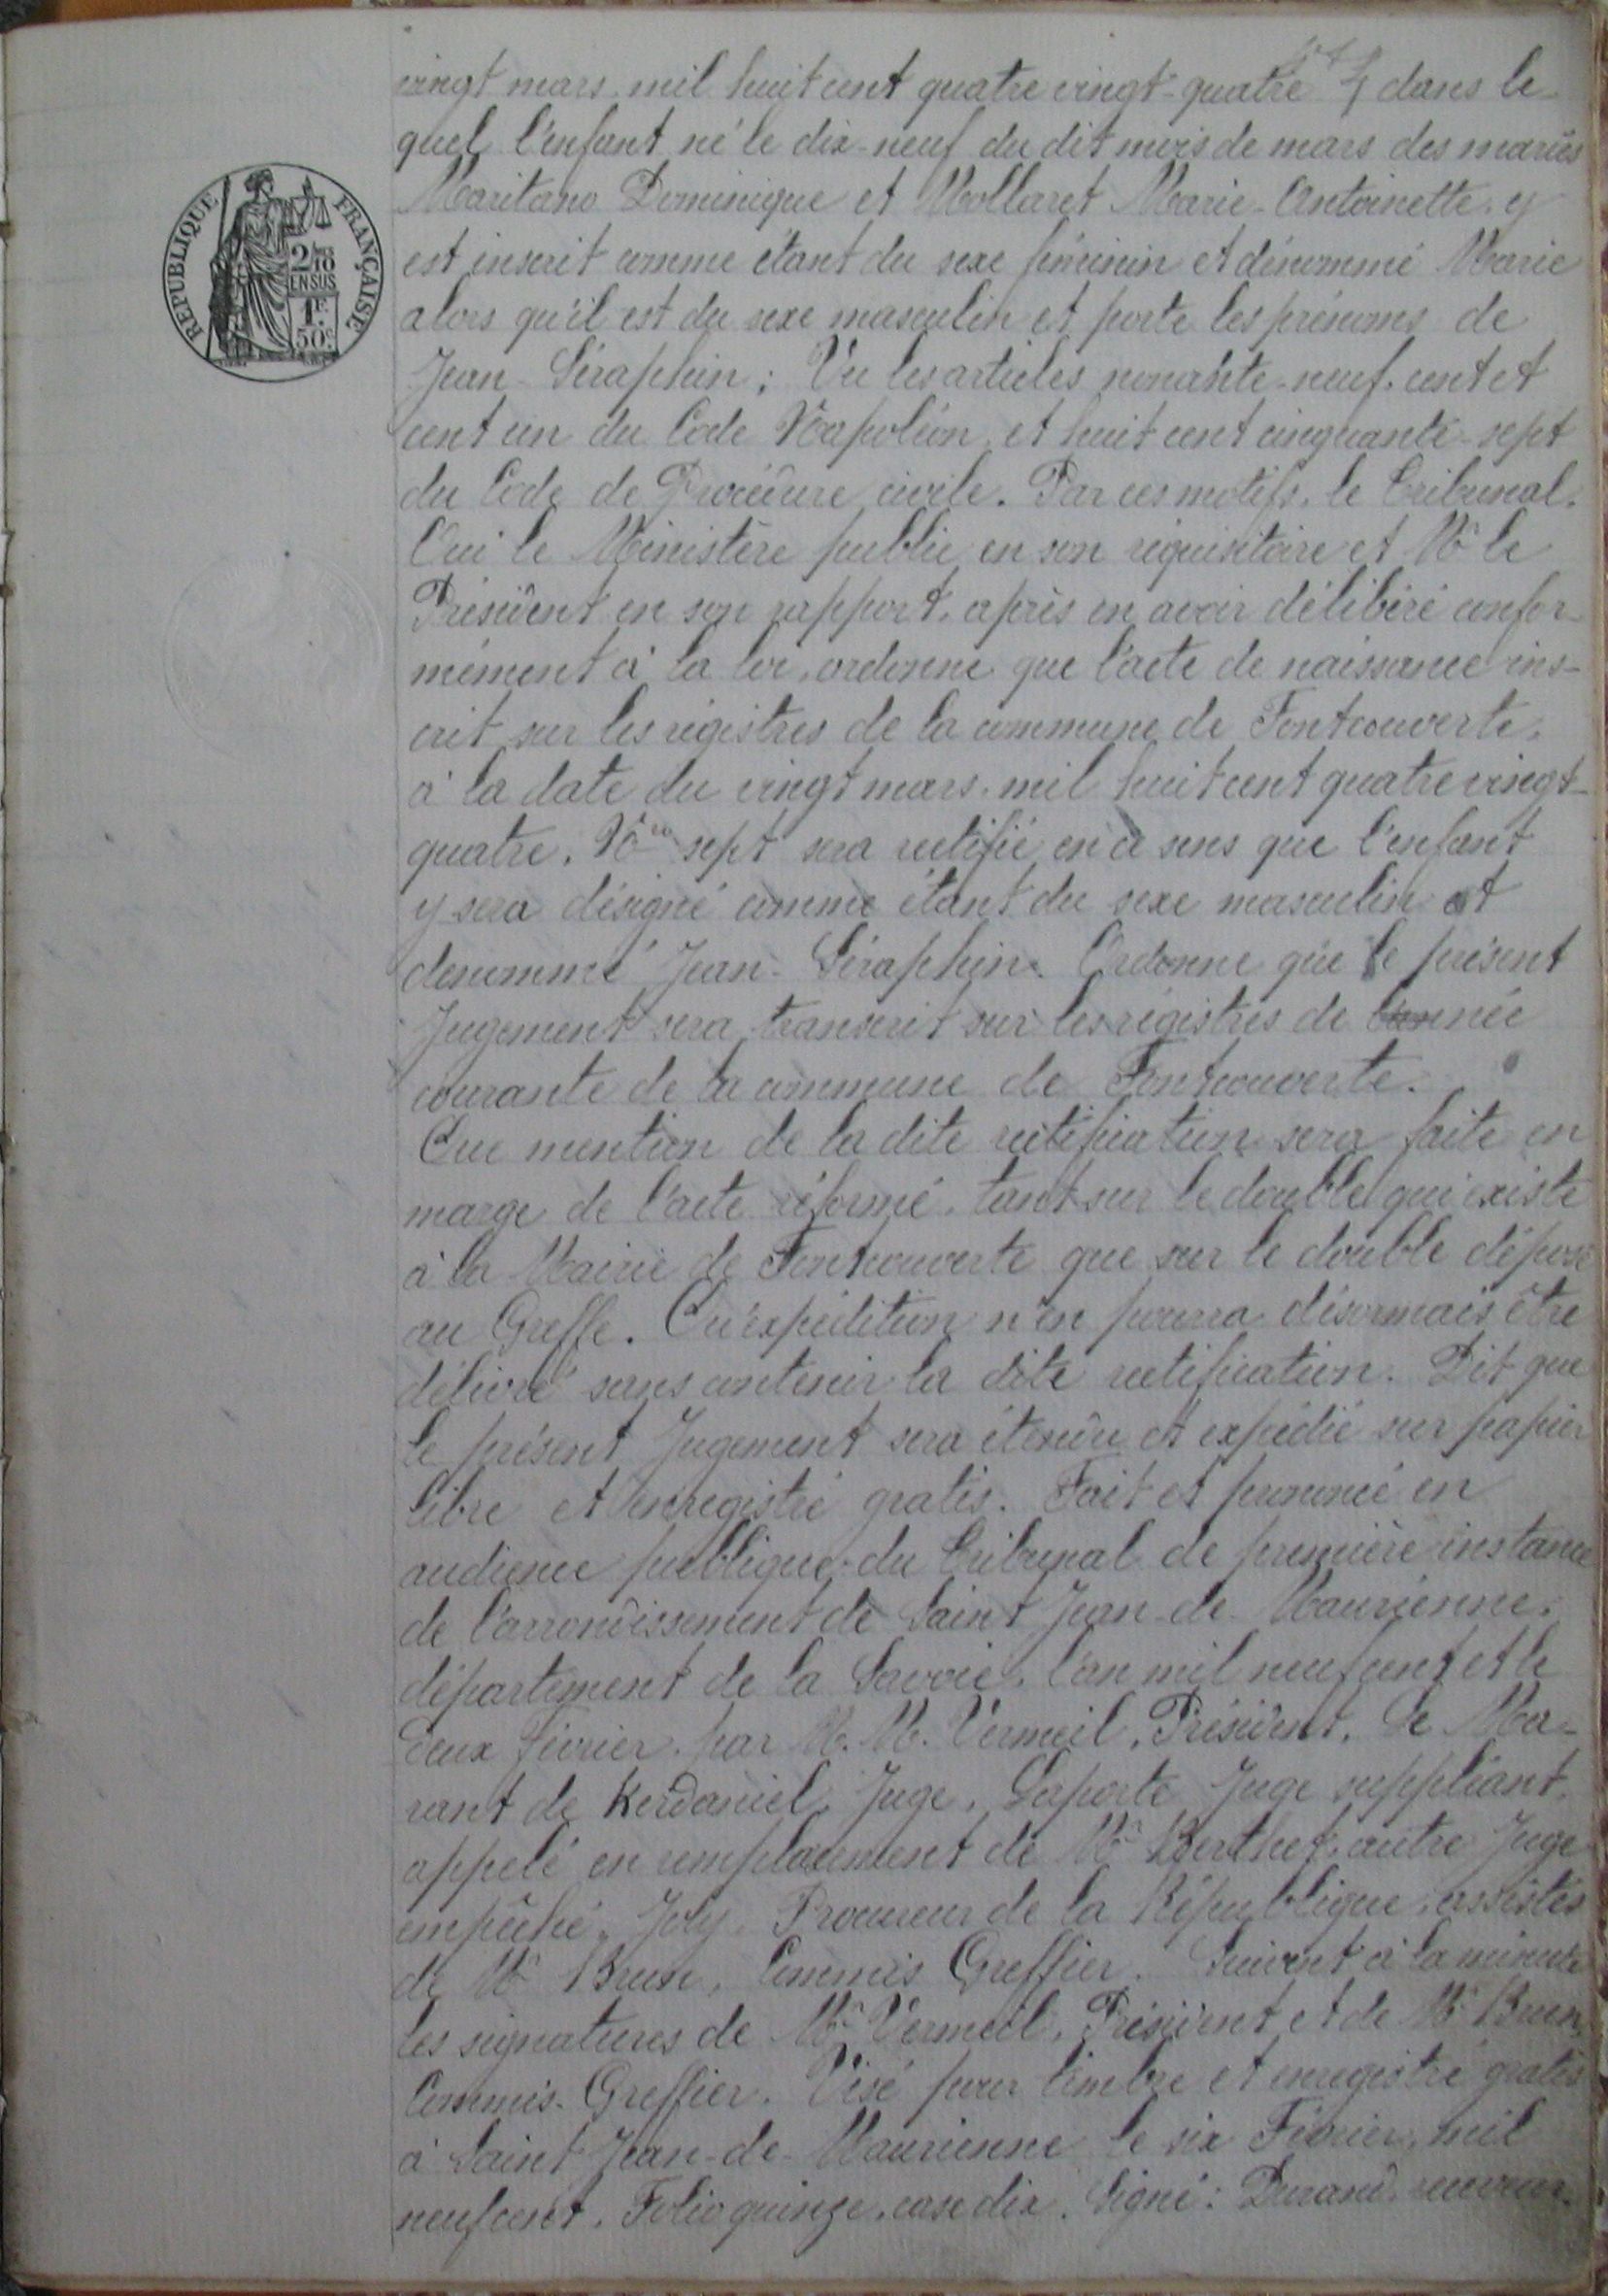 vingt mars, mil huit cent quatre vingt-quatre dans le-
quel l'enfant né le dix-neuf du dit mois de mars des mariés
Maritano Dominique et Mollaret Marie-Antoinette, y
est inscrit comme étant du sexe féminin et dénommé Marie
alors qu'il est du sexe masculin et porte les prénoms de
Jean-Séraphin ; Vu les articles nonante-neuf, cent et
cent un du Code Napoléon, et huit cent cinquante-sept
du Code de Procédure civile. Par ces motifs, le Tribunal,
Ouï le Ministère public en son réquisitoire et Mr le
Président en son rapport, après en avoir délibéré confor-
mément à la loi, ordonne que l'acte de naissance ins-
crit sur les régistres de la commune de Fontcouverte,
à la date du vingt mars, mil huit cent quatre vingt-
quatre, No sept sera rectifié en ce sens que l'enfant
y sera désigné comme étant du sexe masculin et
denommé Jean-Séraphin. Ordonne que le présent
Jugement sera transcrit sur les régistres de l'année
courante de la commune de Fontcouverte.
Que mention de la dite rectification sera faite en
marge de l'acte réformé, tant sur le double qui existe
à la Mairie de Fontcouverte que sur le double déposé
au Greffe. Qu'expédition n'en pourra désormais être
délivré sans contenir la dite rectification. Dit que
le présent Jugement sera étendu et expédié sur papier
libre et enregistré gratis. Fait et prononcé en
audience publique du Tribunal de première instance
de l'arrondissement de Saint Jean-de-Maurienne,
département de la Savoie, l'an mil neuf cent et le
deux février, par M. M. Vermeil, Président, Le Mo-
rant de Kerdaniel, Juge, Laporte Juge suppliant,
appelé en remplacement de Mr Berthet, autre Juge
empêché, Joly, Procureur de la République, assistés
de Mr Brun, Commis Greffier. Suivent à la minute
les signatures de Mr Vermeil, Président et de Mr Brun,
Commis-Greffier. Visé pour timbre et enregistré gratis
à Saint Jean-de-Maurienne le six Février, mil
neuf cent, Folio quinze, case dix. Signé : Durand, receveur.
RÉPUBLIQUE FRANÇAISE
2/10
EN SUS
1F.
50c.